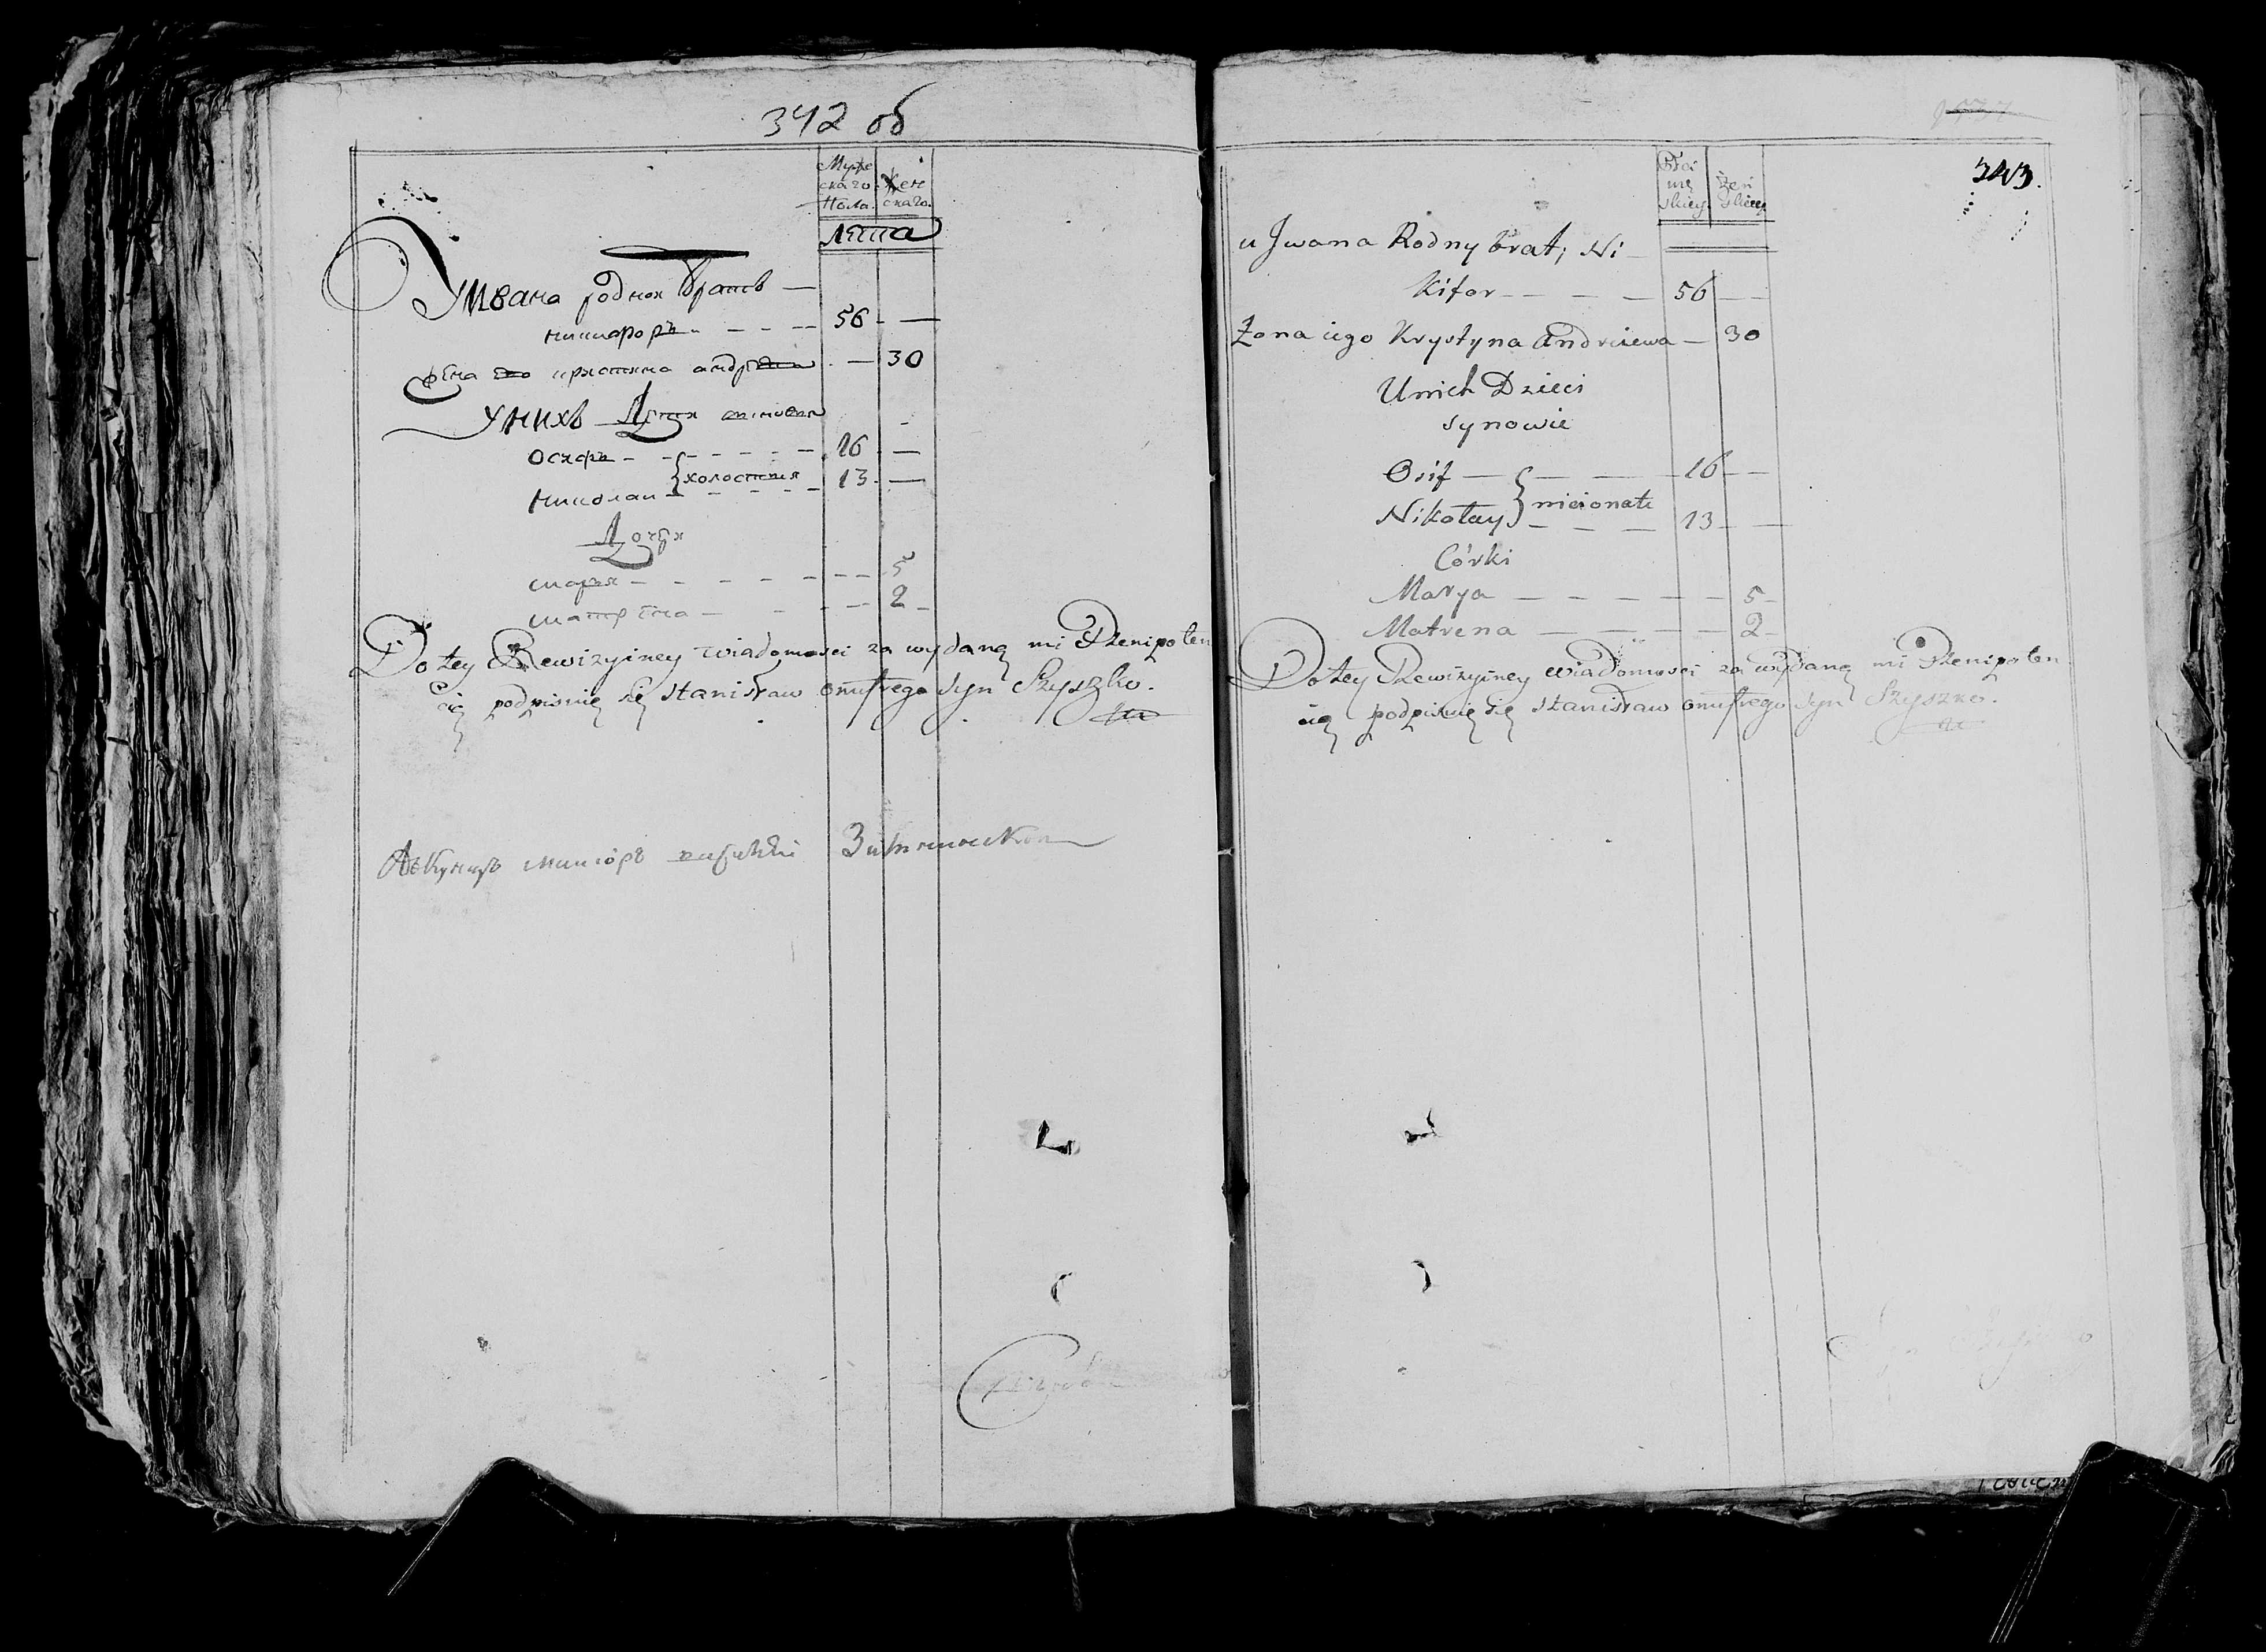 342 об
Мужескаго Пола.
Женскаго.
Лѣта
У Ивана родной братъ —
никифоръ - - - 56 —
жена его кристина андрѣева — 30
У нихъ Дети сыновья
осифъ - - - - - 16 —
николай } холостыя 13 —
Дочери
марья - - - - - 5
матрѣна - - - 2
Do tey Rewizyiney wiadomosci za wydaną mi Plenipoten
cią podpisuię się Stanisław Onufrego Syn Szyszko.
343.
Płci męskiey
żeńskiey
u Jwana Rodny brat; Ni
kifor - - - 56 —
Żona iego Krystyna Andreiewa — 30
Unich Dzieci
synowie
Osif — — — 16 —
Nikołay } nieżonate 13 —
Córki
Marya — — — — 5
Matrena — — — 2
Do tey Rewizyiney wiadomosci za wydaną mi Plenipoten
cią podpisuię się Stanisław Onufrego Syn Szyszko.